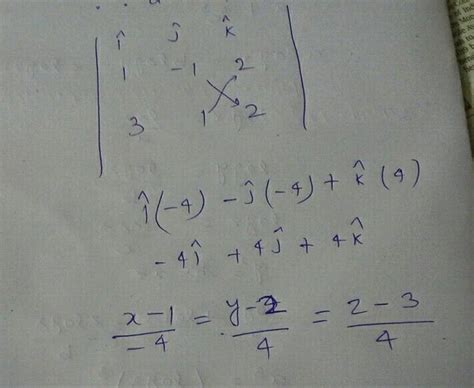 î ĵ k̂
1 -1 2
3 1 2
î(-4) -ĵ(-4) + k̂(4)
-4î + 4ĵ + 4k̂
x-1/-4 = y-2/4 = z-3/4